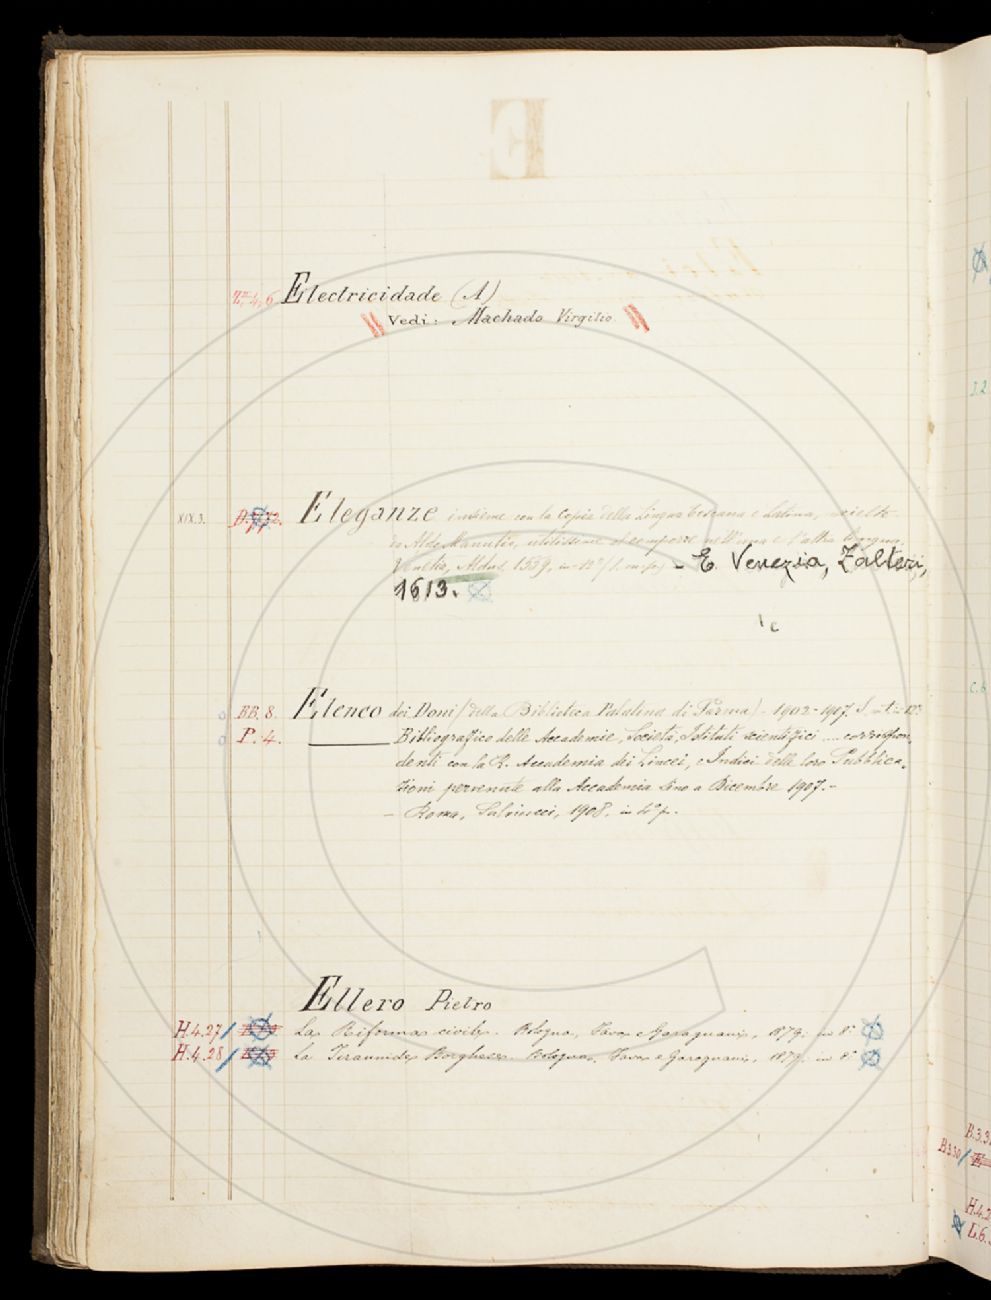 E
Electricidade (A)
Vedi: Machado Virgilio
XIX.3. Eleganze insieme con la Copia della Lingua toscana e Latina, scielte
da Aldo Manutio, utilissime al comporre nell'una e l'altra lingua.
Venetia, Aldus, 1559, in - E. Venezia, Zalteri,
1613.
BB. 8. Elenco dei Doni (della Biblioteca Palatina di Parma) - 1902-1907.
P. 4. Bibliografico delle Accademie, Società, Istituti scientifici .... corrispon
denti con la R. Accademia dei Lincei, e Indici delle loro Pubblica-
zioni pervenute alla Accademia sino a Dicembre 1907.-
- Roma, Salviucci, 1908, in 4° p.
Ellero Pietro
H.4.27/ La Riforma civile. Bologna, Fava e Garagnani, 1879. in 8°
H.4.28/ La Tirannide Borghese. Bologna, Fava e Garagnani, 1879. in 8°
J.2
C.6
B.3.3
B.3.30/
H.4.2
L.6.